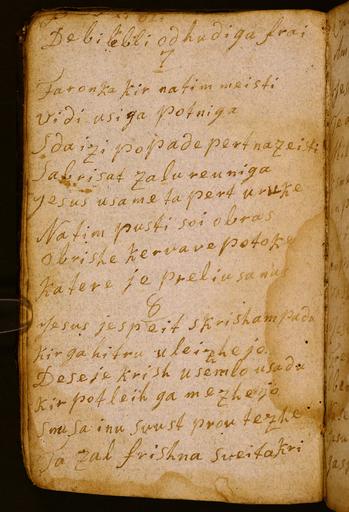 De bi bli od hudiga frai
7
Faronka kir natim meisti
vidi usiga potniga
Sdaizi popade pert nazeisti
Sabrisat zalureuniga
jesus usame ta pert uruke
Natim pusti soi obras
obrishe kervave potoke
katere je preliu sa nas
8
jesus jespeit skrisham pada
kir ga hitru uleizhejo
Deseje krish usemlo usada
kir potleih ga mezhejo
smusa inu suust prou tezhe
Ta zal frishna sveita kri